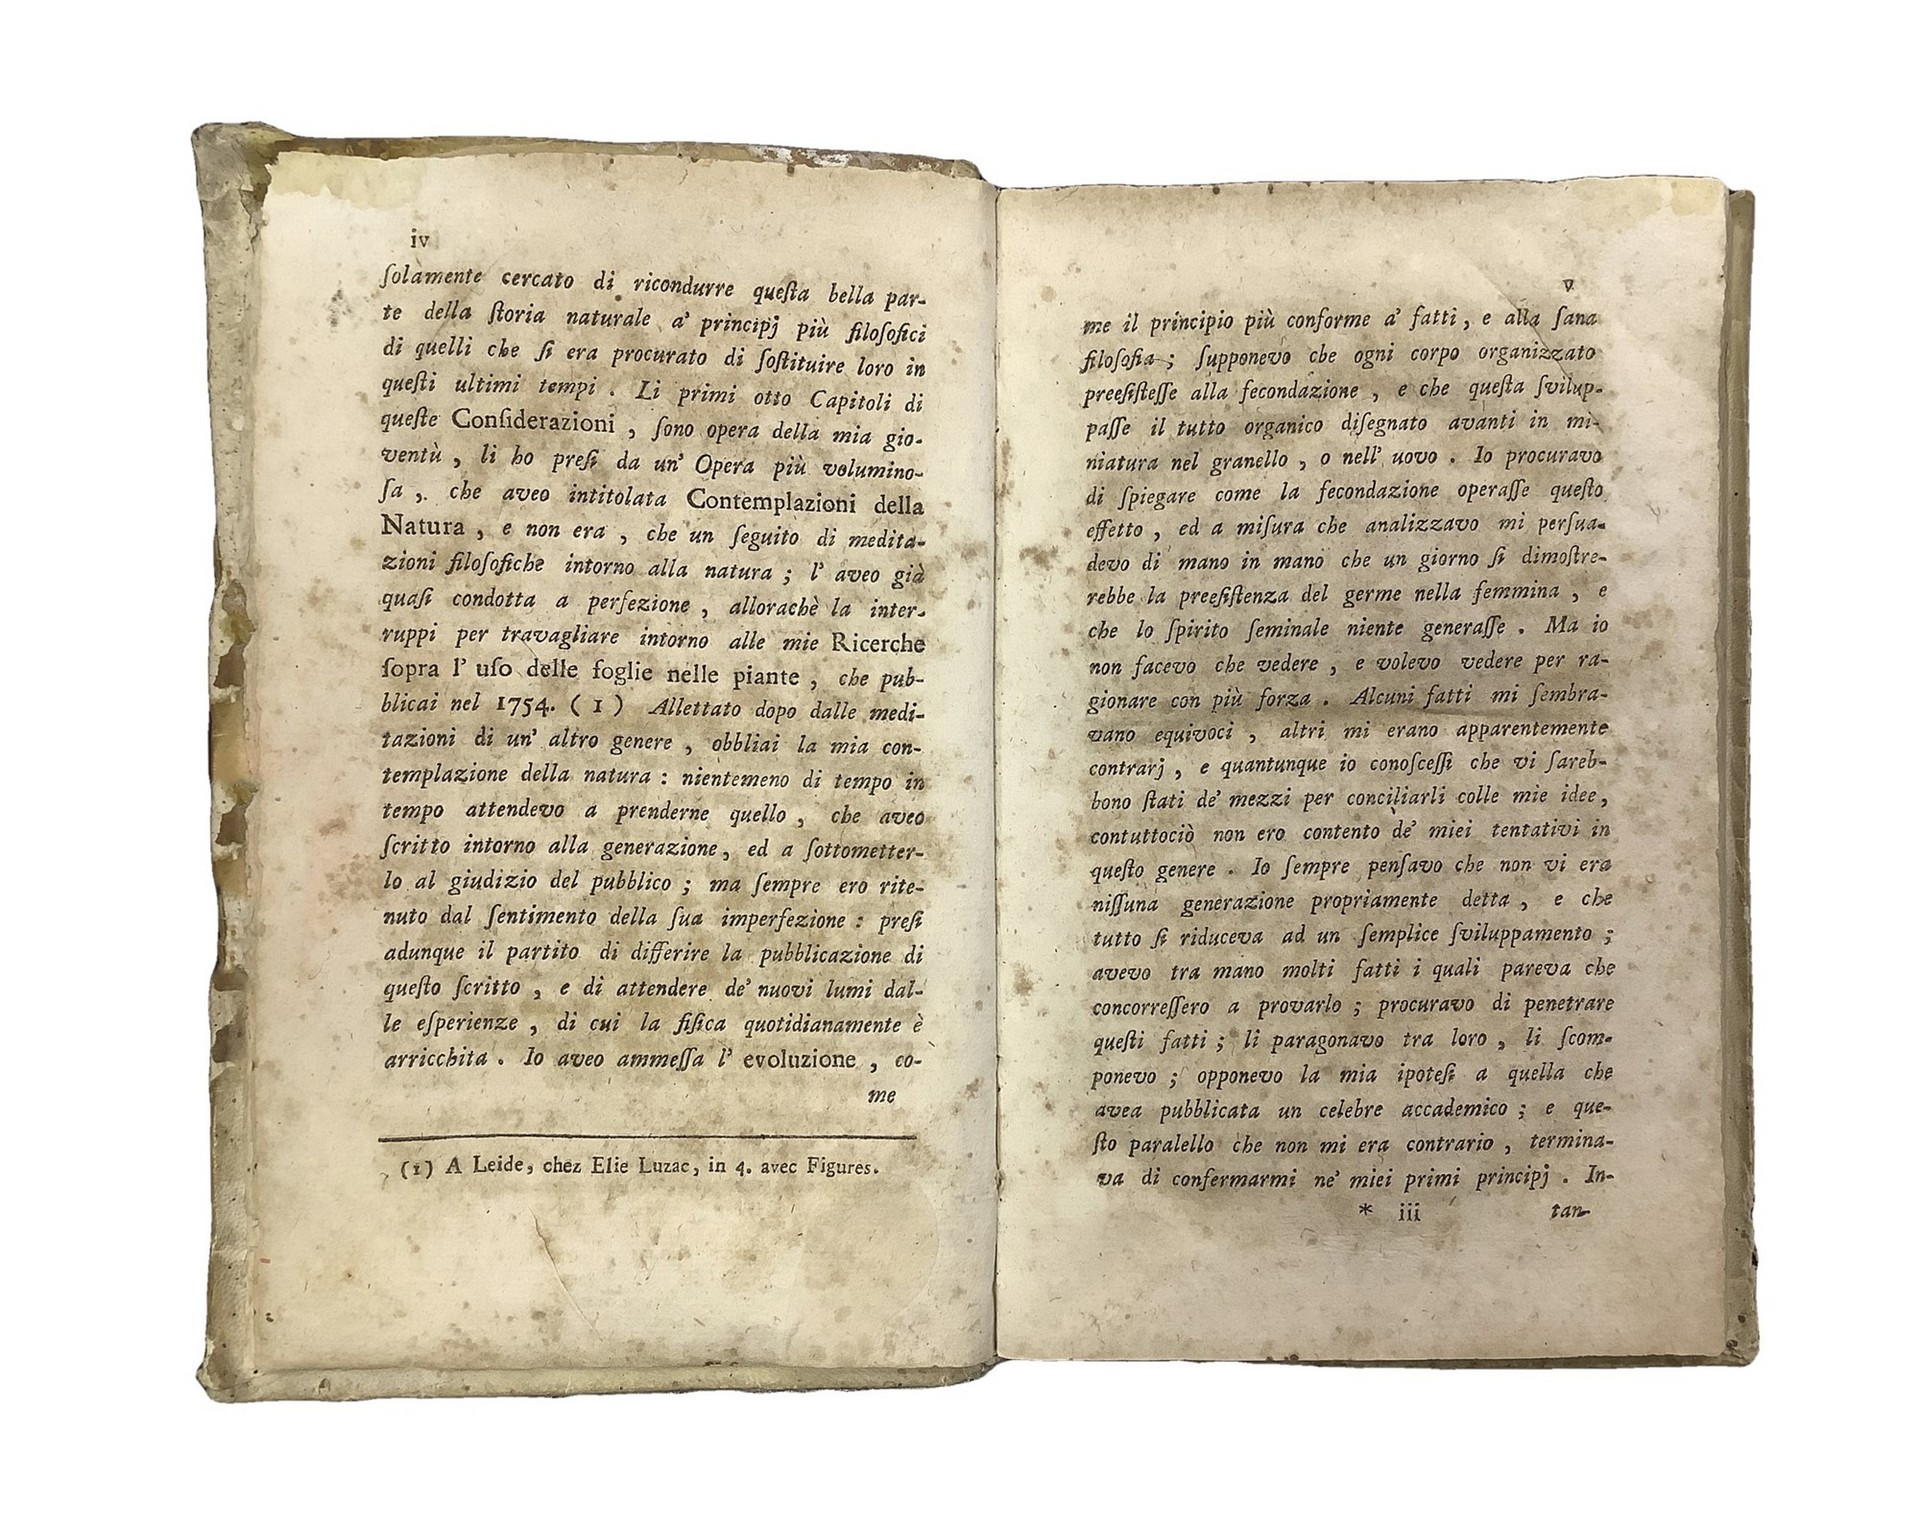 iv
ſolamente cercato di ricondurre queſta bella par-
te della ſtoria naturale a' principj più filoſofici
di quelli che ſi era procurato di ſoſtituire loro in
queſti ultimi tempi . Li primi otto Capitoli di
queſte Conſiderazioni , ſono opera della mia gio-
ventù , li ho preſi da un' Opera più volumino-
ſa , che aveo intitolata Contemplazioni della
Natura , e non era , che un ſeguito di medita-
zioni filoſofiche intorno alla natura ; l' aveo già
quaſi condotta a perfezione , allorachè la inter-
ruppi per travagliare intorno alle mie Ricerche
ſopra l' uſo delle foglie nelle piante , che pub-
blicai nel 1754. ( 1 ) Allettato dopo dalle medi-
tazioni di un' altro genere , obbliai la mia con-
templazione della natura : nientemeno di tempo in
tempo attendevo a prenderne quello , che aveo
ſcritto intorno alla generazione, ed a ſottometter-
lo al giudizio del pubblico ; ma ſempre ero rite-
nuto dal ſentimento della ſua imperfezione : preſi
adunque il partito di differire la pubblicazione di
queſto ſcritto , e di attendere de' nuovi lumi dal-
le eſperienze , di cui la fiſica quotidianamente è
arricchita . Io aveo ammeſſa l' evoluzione , co-
me
(1) A Leide, chez Elie Luzac, in 4. avec Figures.
v
me il principio più conforme a' fatti , e alla ſana
filoſofia ; ſupponevo che ogni corpo organizzato
preeſiſteſſe alla fecondazione , e che queſta ſvilup-
paſſe il tutto organico diſegnato avanti in mi-
niatura nel granello , o nell' uovo . Io procuravo
di ſpiegare come la fecondazione operaſſe queſto
effetto , ed a miſura che analizzavo mi perſua-
devo di mano in mano che un giorno ſi dimoſtre-
rebbe la preeſiſtenza del germe nella femmina , e
che lo ſpirito ſeminale niente generaſſe . Ma io
non facevo che vedere , e volevo vedere per ra-
gionare con più forza . Alcuni fatti mi ſembra-
vano equivoci , altri mi erano apparentemente
contrarj , e quantunque io conoſceſſi che vi ſareb-
bono ſtati de' mezzi per conciliarli colle mie idee,
contuttociò non ero contento de' miei tentativi in
queſto genere . Io ſempre penſavo che non vi era
niſſuna generazione propriamente detta , e che
tutto ſi riduceva ad un ſemplice ſviluppamento ;
avevo tra mano molti fatti i quali pareva che
concorreſſero a provarlo ; procuravo di penetrare
queſti fatti ; li paragonavo tra loro , li ſcom-
ponevo ; opponevo la mia ipoteſi a quella che
avea pubblicata un celebre accademico ; e que-
ſto paralello che non mi era contrario , termina-
va di confermarmi ne' miei primi principj . In-
* iii
tan-